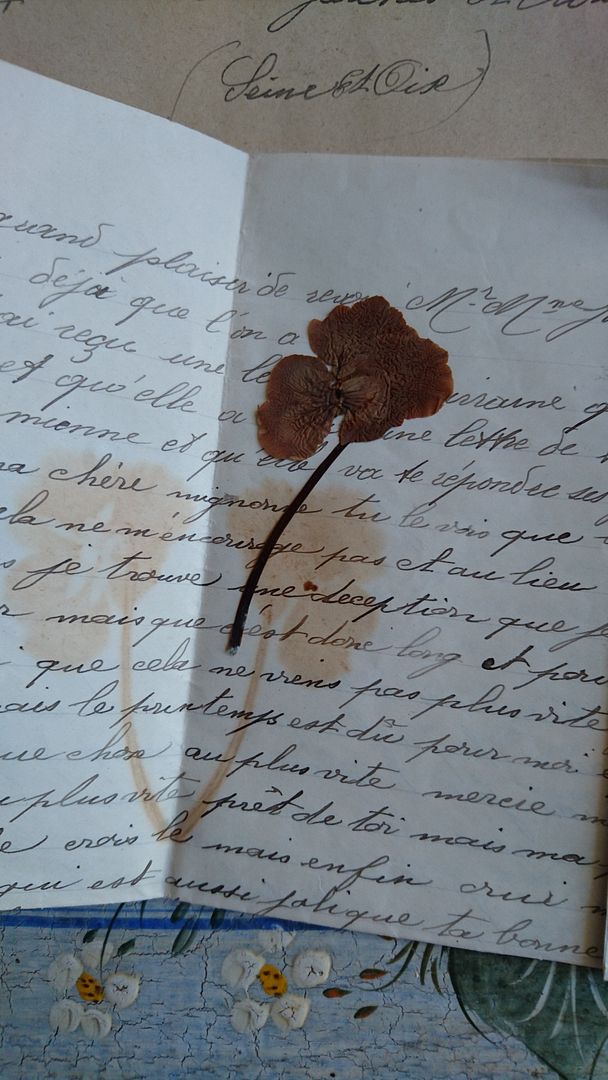 (Seine et Oise)
quand plaisir de revoir Mr Mme
déjà que l'on a
ai reçu une
et qu'elle a une lettre de
mienne et qu'elle va te répondre ses
ma chère mignonne tu le vois que
cela ne m'encourage pas et au lieu
je trouve une deception que
mais que c'est donc long et pour
que cela ne viens pas plus vite
mais le printemps est dû pour moi
que chose au plus vite mercie
plus vite prêt de toi mais ma
crois le mais enfin
qui est aussi jolique ta bonne